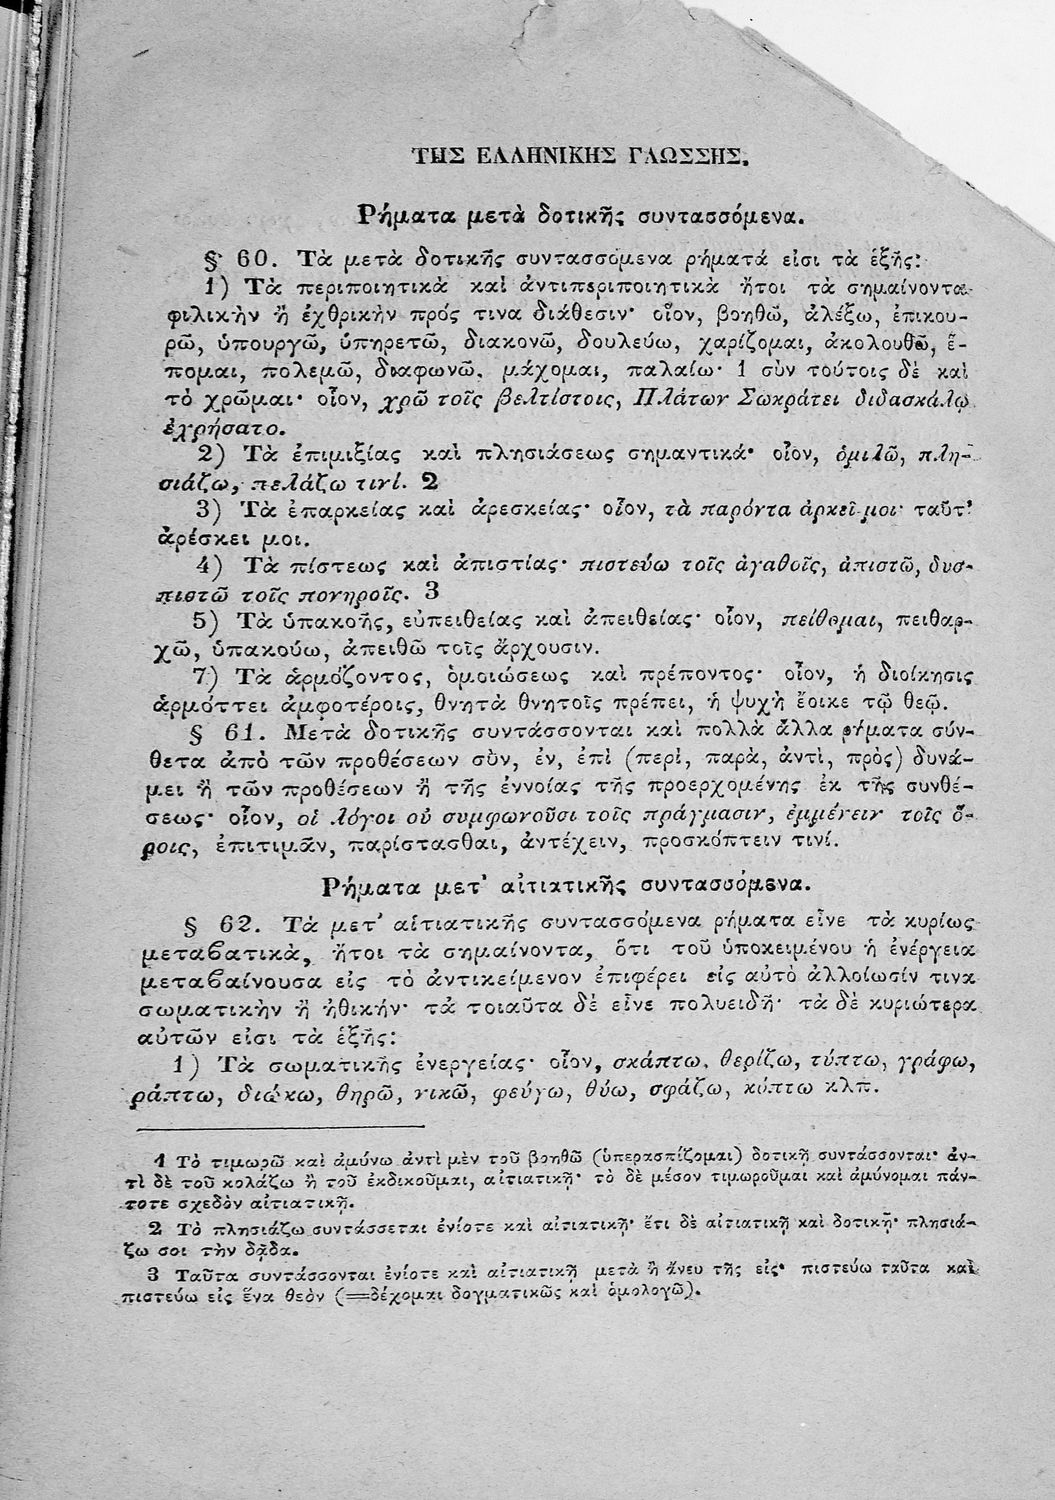 ΤΗΣ ΕΛΛΗΝΙΚΗΣ ΓΛΩΣΣΗΣ.
Ρήματα μετὰ δοτικῆς συντασσόμενα.
§ 60. Τὰ μετὰ δοτικῆς συντασσόμενα ρήματά εἰσι τὰ ἑξῆς:
1) Τὰ περιποιητικὰ καὶ ἀντιπεριποιητικὰ ἤτοι τὰ σημαίνοντα
φιλικὴν ἢ ἐχθρικὴν πρός τινα διάθεσιν· οἷον, βοηθῶ, ἀλέξω, ἐπικου-
ρῶ, ὑπουργῶ, ὑπηρετῶ, διακονῶ, δουλεύω, χαρίζομαι, ἀκολουθῶ, ἕ-
πομαι, πολεμῶ, διαφωνῶ, μάχομαι, παλαίω· 1 σὺν τούτοις δὲ καὶ
τὸ χρῶμαι· οἷον, χρῶ τοῖς βελτίστοις, Πλάτων Σωκράτει διδασκάλῳ
ἐχρήσατο.
2) Τὰ ἐπιμιξίας καὶ πλησιάσεως σημαντικά· οἷον, ὁμιλῶ, πλη-
σιάζω, πελάζω τινί. 2
3) Τὰ ἐπαρκείας καὶ ἀρεσκείας· οἷον, τὰ παρόντα ἀρκεῖ μοι· ταῦτ'
ἀρέσκει μοι.
4) Τὰ πίστεως καὶ ἀπιστίας· πιστεύω τοῖς ἀγαθοῖς, ἀπιστῶ, δυσ-
πιστῶ τοῖς πονηροῖς. 3
5) Τὰ ὑπακοῆς, εὐπειθείας καὶ ἀπειθείας· οἷον, πείθομαι, πειθαρ-
χῶ, ὑπακούω, ἀπειθῶ τοῖς ἄρχουσιν.
7) Τὰ ἁρμόζοντος, ὁμοιώσεως καὶ πρέποντος· οἷον, ἡ διοίκησις
ἁρμόττει ἀμφοτέροις, θνητὰ θνητοῖς πρέπει, ἡ ψυχὴ ἔοικε τῷ θεῷ.
§ 61. Μετὰ δοτικῆς συντάσσονται καὶ πολλὰ ἄλλα ρήματα σύν-
θετα ἀπὸ τῶν προθέσεων σὺν, ἐν, ἐπὶ (περὶ, παρὰ, ἀντὶ, πρὸς) δυνά-
μει ἢ τῶν προθέσεων ἢ τῆς ἐννοίας τῆς προερχομένης ἐκ τῆς συνθέ-
σεως· οἷον, οἱ λόγοι οὐ συμφωνοῦσι τοῖς πράγμασιν, ἐμμένειν τοῖς ὅ-
ροις, ἐπιτιμᾶν, παρίστασθαι, ἀντέχειν, προσκόπτειν τινί.
Ρήματα μετ' αἰτιατικῆς συντασσόμενα.
§ 62. Τὰ μετ' αἰτιατικῆς συντασσόμενα ρήματα εἶνε τὰ κυρίως
μεταβατικὰ, ἤτοι τὰ σημαίνοντα, ὅτι τοῦ ὑποκειμένου ἡ ἐνέργεια
μεταβαίνουσα εἰς τὸ ἀντικείμενον ἐπιφέρει εἰς αὐτὸ ἀλλοίωσίν τινα
σωματικὴν ἢ ἠθικήν· τὰ τοιαῦτα δὲ εἶνε πολυειδῆ· τὰ δὲ κυριώτερα
αὐτῶν εἰσι τὰ ἑξῆς:
1) Τὰ σωματικῆς ἐνεργείας· οἷον, σκάπτω, θερίζω, τύπτω, γράφω,
ράπτω, διώκω, θηρῶ, νικῶ, φεύγω, θύω, σφάζω, κόπτω κλπ.
1 Τὸ τιμωρῶ καὶ ἀμύνω ἀντὶ μὲν τοῦ βοηθῶ (ὑπερασπίζομαι) δοτικῇ συντάσσονται· ἀν-
τὶ δὲ τοῦ κολάζω ἢ τοῦ ἐκδικοῦμαι, αἰτιατικῇ· τὸ δὲ μέσον τιμωροῦμαι καὶ ἀμύνομαι πάν-
τοτε σχεδὸν αἰτιατικῇ.
2 Τὸ πλησιάζω συντάσσεται ἐνίοτε καὶ αἰτιατικῇ· ἔτι δὲ αἰτιατικῇ καὶ δοτικῇ· πλησιά-
ζω σοι τὴν δᾷδα.
3 Ταῦτα συντάσσονται ἐνίοτε καὶ αἰτιατικῇ μετὰ ἢ ἄνευ τῆς εἰς· πιστεύω ταῦτα καὶ
πιστεύω εἰς ἕνα θεὸν (=δέχομαι δογματικῶς καὶ ὁμολογῶ).